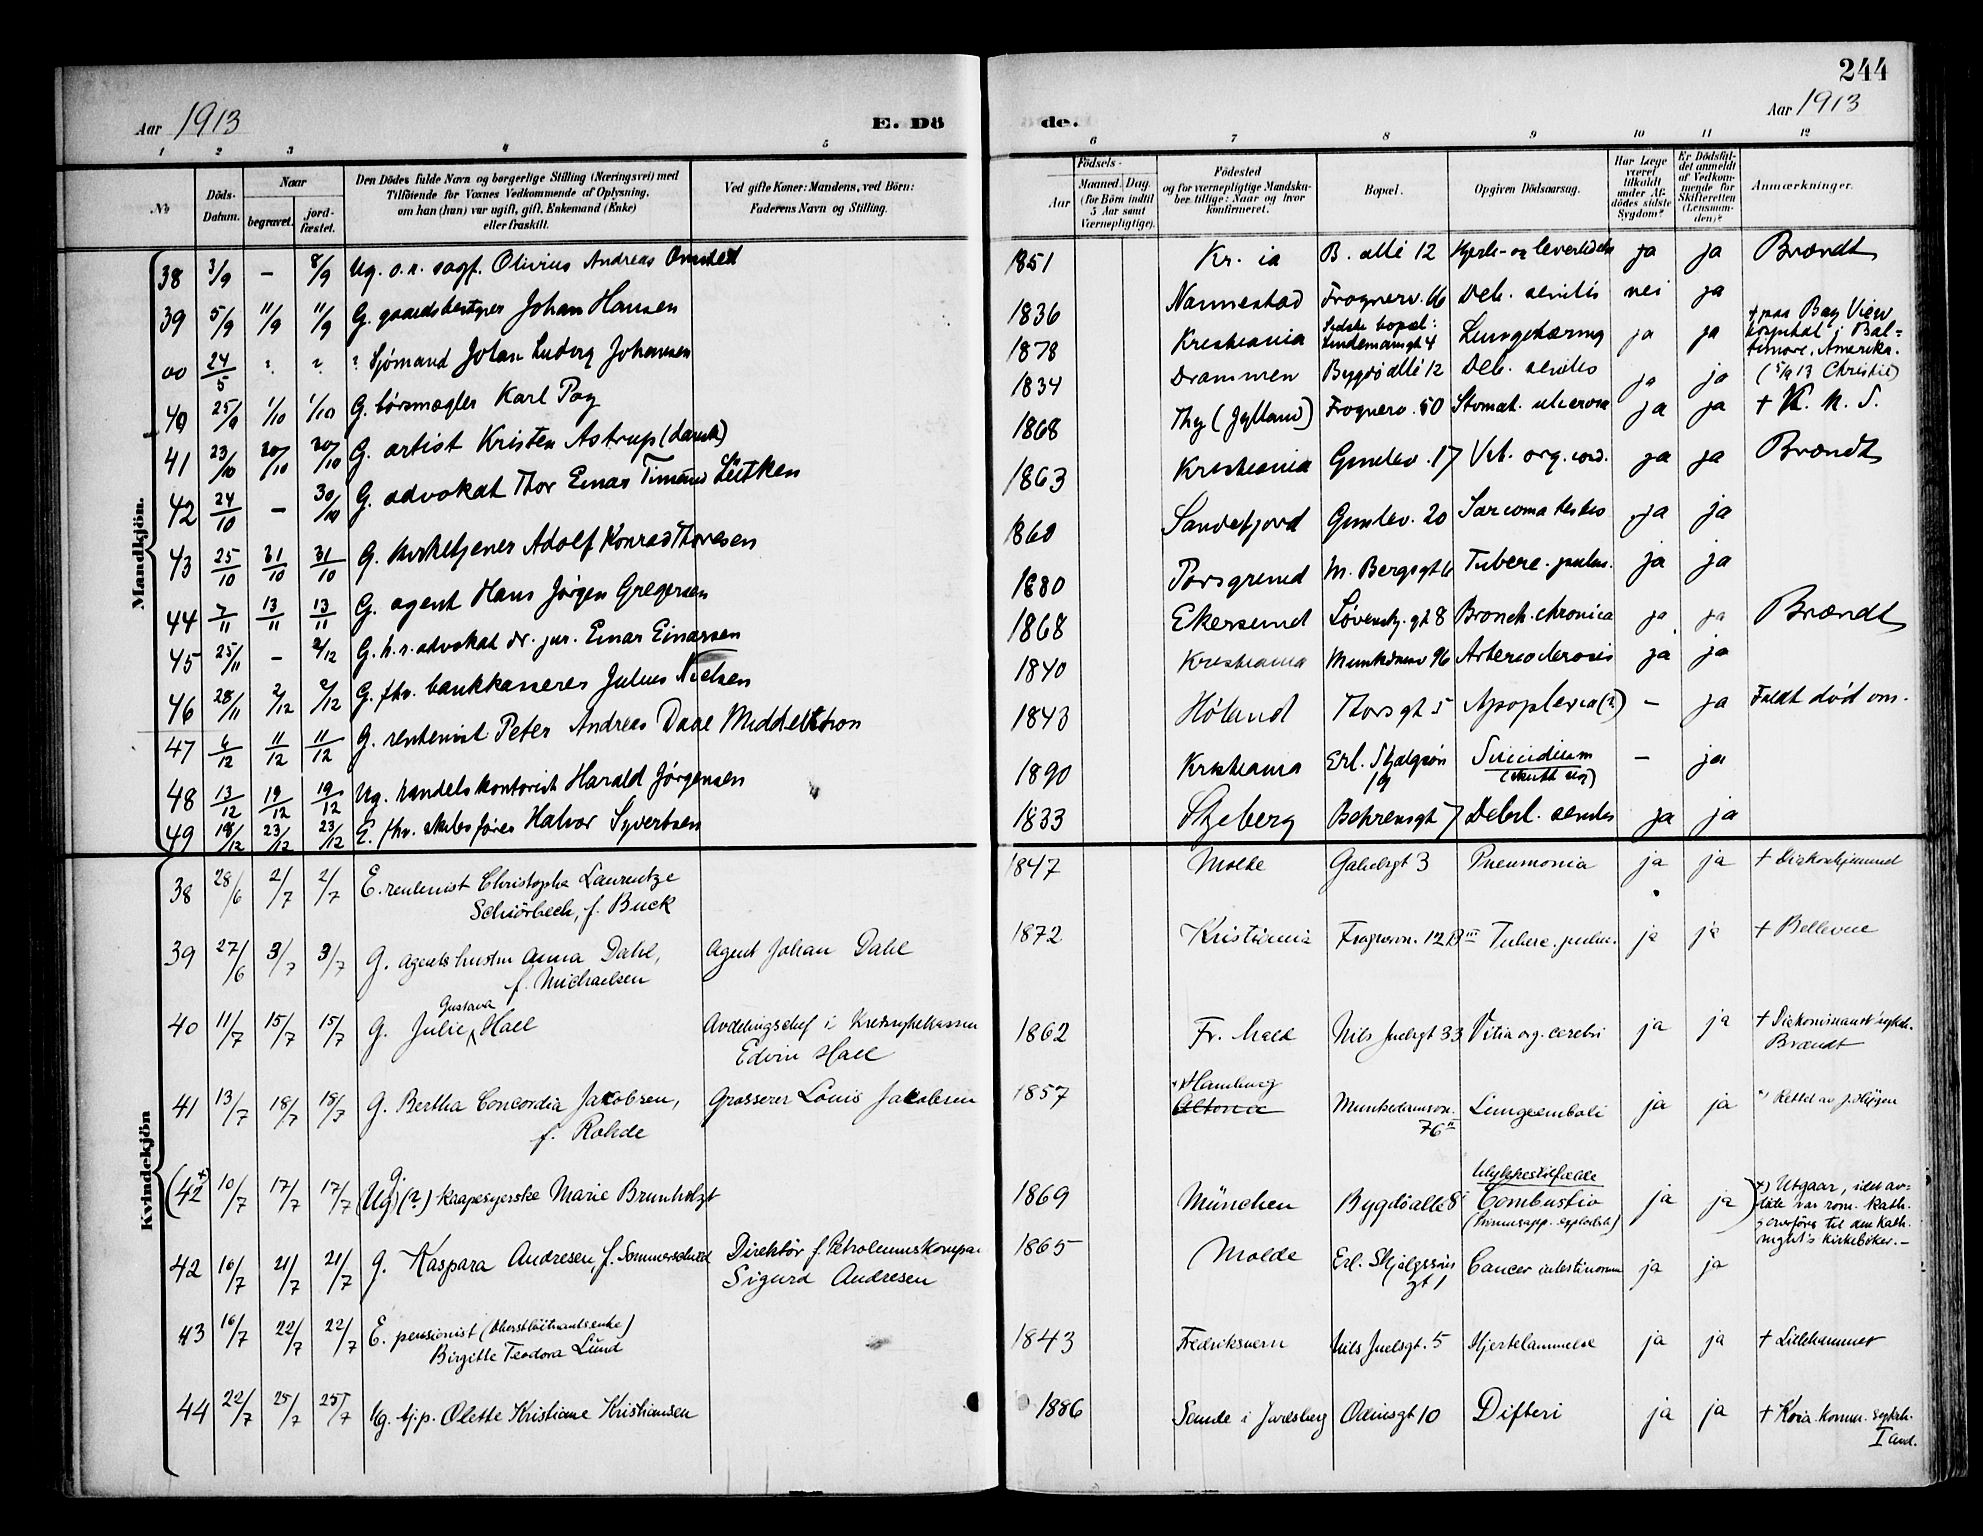 244
Aar 1913
E. Dö
de.
Aar 1913
1 2 3 4 5 6 7 8 9 10 11 12
№
Döds-
Datum.
Naar
begravet.
jord-
fæstet.
Den Dödes fulde Navn og borgerlige Stilling (Næringsvei) med
Tilföiende for Voxnes Vedkommende af Oplysning,
om han (hun) var ugift, gift, Enkemand (Enke)
eller fraskilt.
Ved gifte Koner: Mandens, ved Börn:
Faderens Navn og Stilling.
Födsels-
Aar
Maaned. Dag.
(for Börn indtil
5 Aar samt
Værnepligtige).
Födested
og for værnepligtige Mandska-
ber tillige: Naar og hvor
konfirmeret.
Bopæl.
Opgiven Dödsaarsag.
Har Læge
været
tilkaldt
under Af-
dödes sidste
Sygdom?
Er Dödsfal-
det anmeldt
af Vedkom-
mende for
Skifteretten
(Lensman-
den)?
Anmærkninger.
Mandkjön.
38 3/9 – 8/9 Ug. o.r. sagf. Olivius Andreas Omsted 1851 Kr. ia B. allé 12 Hjerte- og leverlidelse ja ja Brændt
39 5/9 11/9 11/9 G. gaardsbestyrer Johan Hansen 1836 Nannestad Frognerv. 66 Deb. senilis nei ja
00 24/5 ? ? ? Sjömand Johan Ludvig Johansen 1878 Kristiania Sidste bopæl: Lindemansgt 4 Lungetæring ja ja + paa Bay View
hospital i Bal-
timore, Amerika.
(5/9 13 Christie)
40 25/9 1/10 1/10 G. børsmægler Karl Pay 1834 Drammen Bygdö allé 12 Deb. senilis ja ja
41 23/10 30/10 30/10 G. artist Kristen Astrup (dansk) 1868 Thy (Jylland) Frognerv. 50 Stomat. ulcerosa ja ja + K. K. S.
42 24/10 – 30/10 G. advokat Thor Einar Lütken 1863 Kristiania Gimlev. 17 Vit. org. cord. ja ja Brændt
43 25/10 31/10 31/10 G. kirketjener Adolf Konrad Thoresen 1860 Sandefjord Gimlev. 20 Sarcoma testis ja ja
44 7/11 13/11 13/11 G. agent Hans Jørgen Gregersen 1880 Porsgrund M. Bergsgt 6 Tuberc. pulm. ja ja
45 25/11 – 2/12 G. h.r. advokat dr. jur. Einar Einarsen 1868 Ekersund Løvensk. gt 8 Bronch. chronica ja ja Brændt
46 28/11 2/12 2/12 G. fhv. bankkasserer Julius Nielsen 1840 Kristiania Munkedamsv 96 Arteriosclerosis ja ja
47 6/12 11/12 11/12 G. rentenist Peter Andreas Daae Middelthon 1843 Höland Thorsgt 5 Apoplexia (?) – ja Faldt död om.
48 13/12 19/12 19/12 Ug. handelskontorist Harald Jørgensen 1890 Kristiania Erl. Skjalgsøn 19 Suicidium
(skutt sig) – ja
49 18/12 23/12 23/12 E. fhv. skibsfører Halvor Syvertsen 1833 Skjeberg Behrensgt 7 Debil. senilis ja ja
Kvindekjön
38 28/6 2/7 2/7 E. rentenist Christopha Laurentze 1847 Molde Gabelsgt 3 Pneumonia ja ja + Diakonhjemmet
Schiörbeck, f. Buck
39 27/6 3/7 3/7 G. agentshustru Anna Dahl, Agent Johan Dahl 1872 Kristiania Frognerv. 12 B III Tuberc. pulm. ja ja + Bellevue
f. Michaelsen
40 11/7 15/7 15/7 G. Julie Gustava Hall Avdelingschef i Kredsykekassen 1862 Fr. hald Nils Juelsgt 33 Vitia org. cerebri ja ja + Diakonisseanst sykeh.
Edvin Hall Brændt
41 13/7 18/7 18/7 G. Bertha Concordia Jakobsen, Grosserer Louis Jakobsen 1857 *) Hamburg
Altona Munkedamsv. 76 II Lungeemboli ja ja *) Rettet av
f. Rohde
(42+ 10/7 17/7 17/7 (Ug) g. (?) kaapesyerske Marie Brunholzt 1869 München Bygdö allé 8 Ulykkestilfælde
Combustio ja ja) +) Utgaar, idet av-
(Primusapp. explosion) döde var rom. kath.
g overföres til den kath.
men's kirkeböker. –
42 16/7 21/7 21/7 G. Kaspara Andresen, f. Sommerschield Direktör f. Petroleumskompa 1865 Molde Erl. Skjalgssöns gt 1 Cancer intestinorum ja ja
Sigurd Andresen
43 16/7 22/7 22/7 E. pensionist (oberstlöitnantsenke) 1843 Fredriksvern Nils Juelsgt. 5 Hjertelammelse ja ja + Lillehammer
Birgitte Teodora Lund
44 22/7 25/7 25/7 Ug. tj.p. Olette Kristiane Kristiansen 1886 Sande i Jarlsberg Odinsgt 10 Difteri ja ja + Kria. komm. sykeh.
I avd.